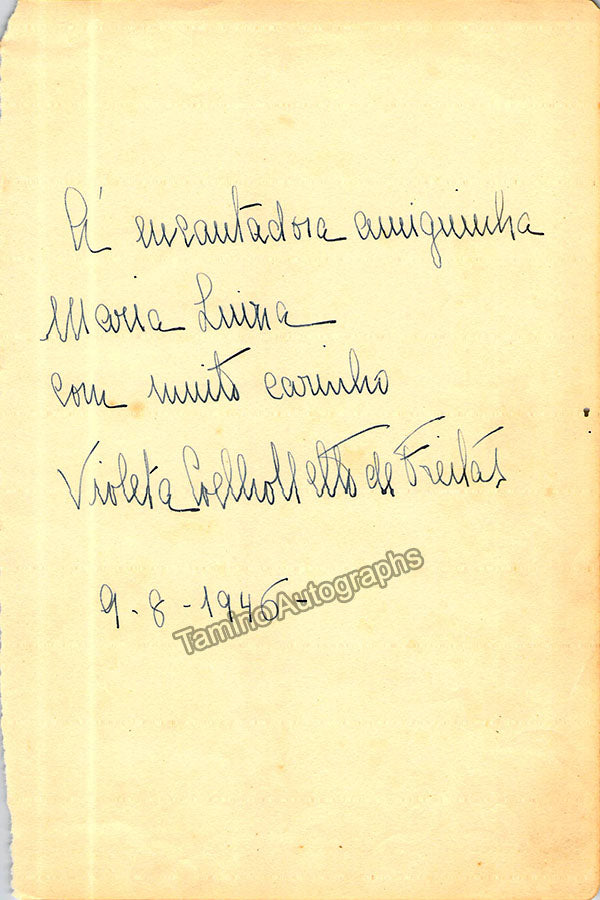 Á encantadora amiguinha
Maria Luiza
com muito carinho
Violeta Coelho Netto de Freitas
9-8-1946-
Tamino Autographs